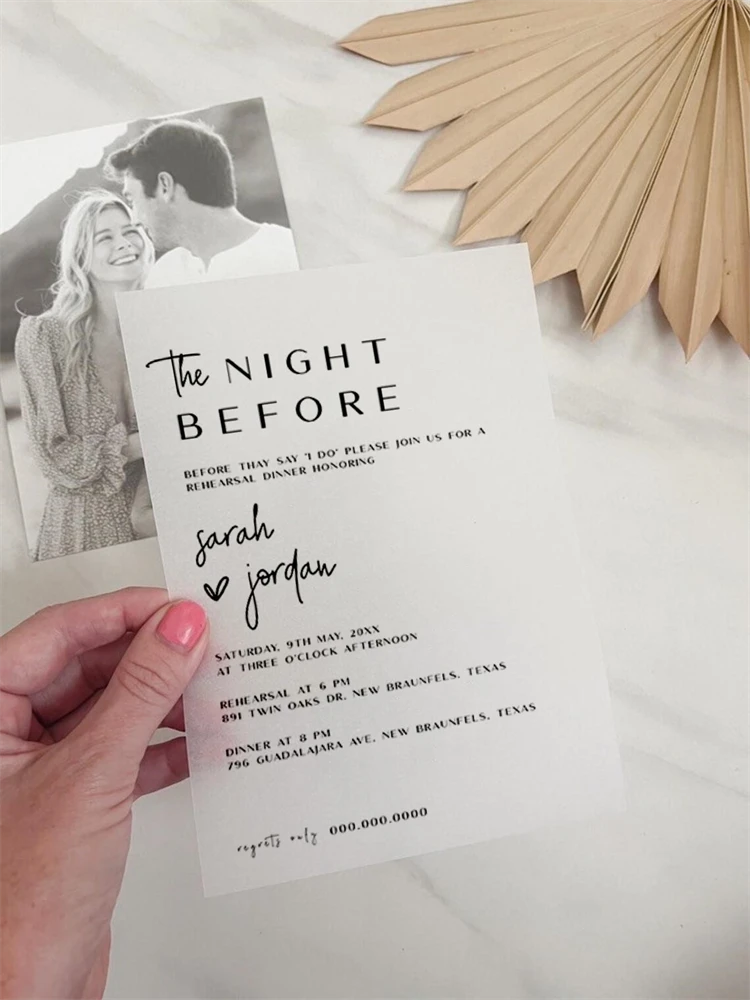 the NIGHT
BEFORE
BEFORE THAY SAY 'I DO' PLEASE JOIN US FOR A
REHEARSAL DINNER HONORING
sarah
♥ jordan
SATURDAY, 9TH MAY, 20XX
AT THREE O'CLOCK AFTERNOON
REHEARSAL AT 6 PM
891 TWIN OAKS DR, NEW BRAUNFELS, TEXAS
DINNER AT 8 PM
796 GUADALAJARA AVE, NEW BRAUNFELS, TEXAS
regrets only 000.000.0000